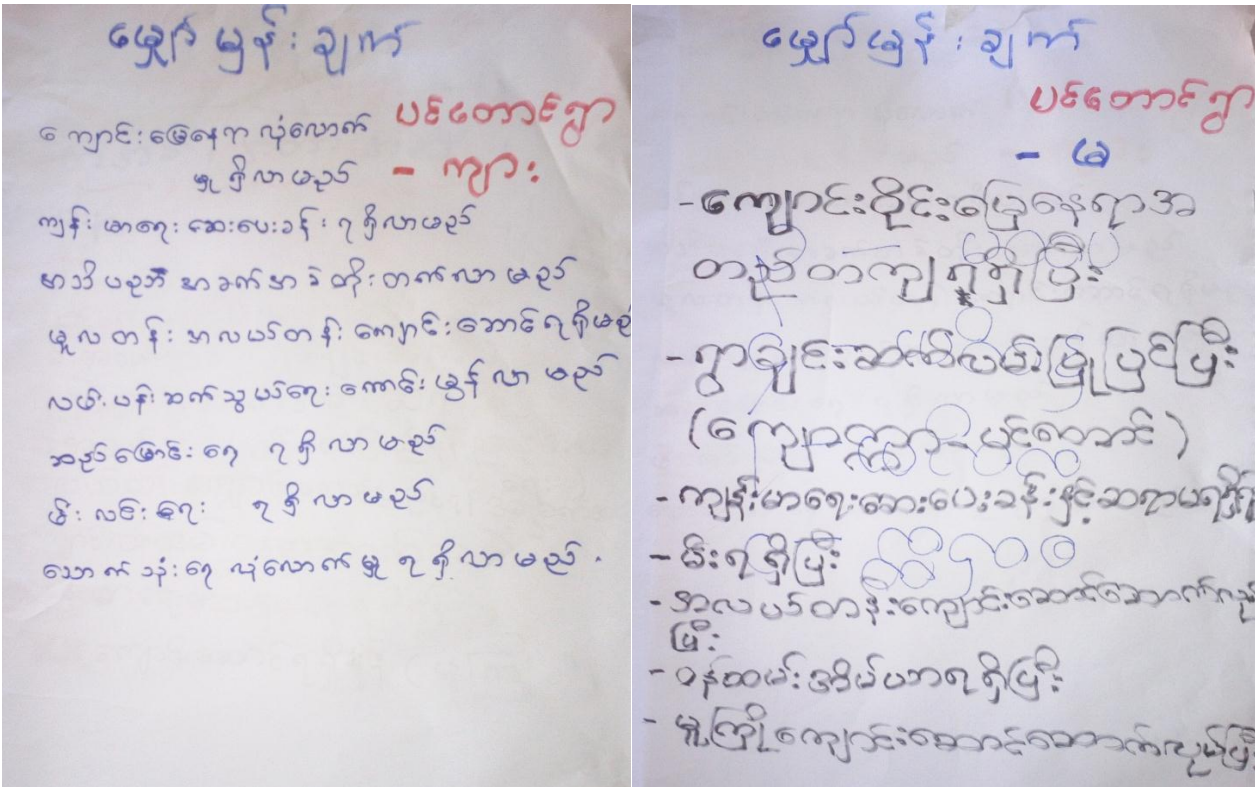 မျှော်မှန်းချက်
ပင်တောင်ရွာ
- ကျား
ကျောင်းမြေနေရာ လုံလောက်
မှု ရှိလာမည်
ကျန်းမာရေး ဆေးပေးခန်း ရရှိလာမည်
အသိပညာ အခက်အခဲ တိုးတက်လာမည်
မူလတန်း အလယ်တန်း ကျောင်းဆောင်ရရှိမည်
လမ်းပန်းဆက်သွယ်ရေး ကောင်းမွန်လာမည်
ဆည်မြောင်းရေ ရရှိလာမည်
မီးလင်းရေး ရရှိလာမည်
သောက်သုံးရေ လုံလောက်မှု ရရှိလာမည်.
မျှော်မှန်းချက်
ပင်တောင်ရွာ
- မ
- ကျောင်းဝိုင်းမြေနေရာအ
တည်တကျရရှိပြီး
- ရွာချင်းဆက်လမ်းပြုပြင်ပြီး
- ပင်တောင်)
- ကျန်းမာရေးဆေးပေးခန်းနှင့်ဆရာမရရှိ
- မီးရရှိပြီး
- အလယ်တန်းကျောင်းဆောင်ဆောက်လုပ်
ပြီး
- ဝန်ထမ်းအိမ်ယာရရှိပြီး
- မူကြိုကျောင်းဆောင်ဆောက်လုပ်ပြီး